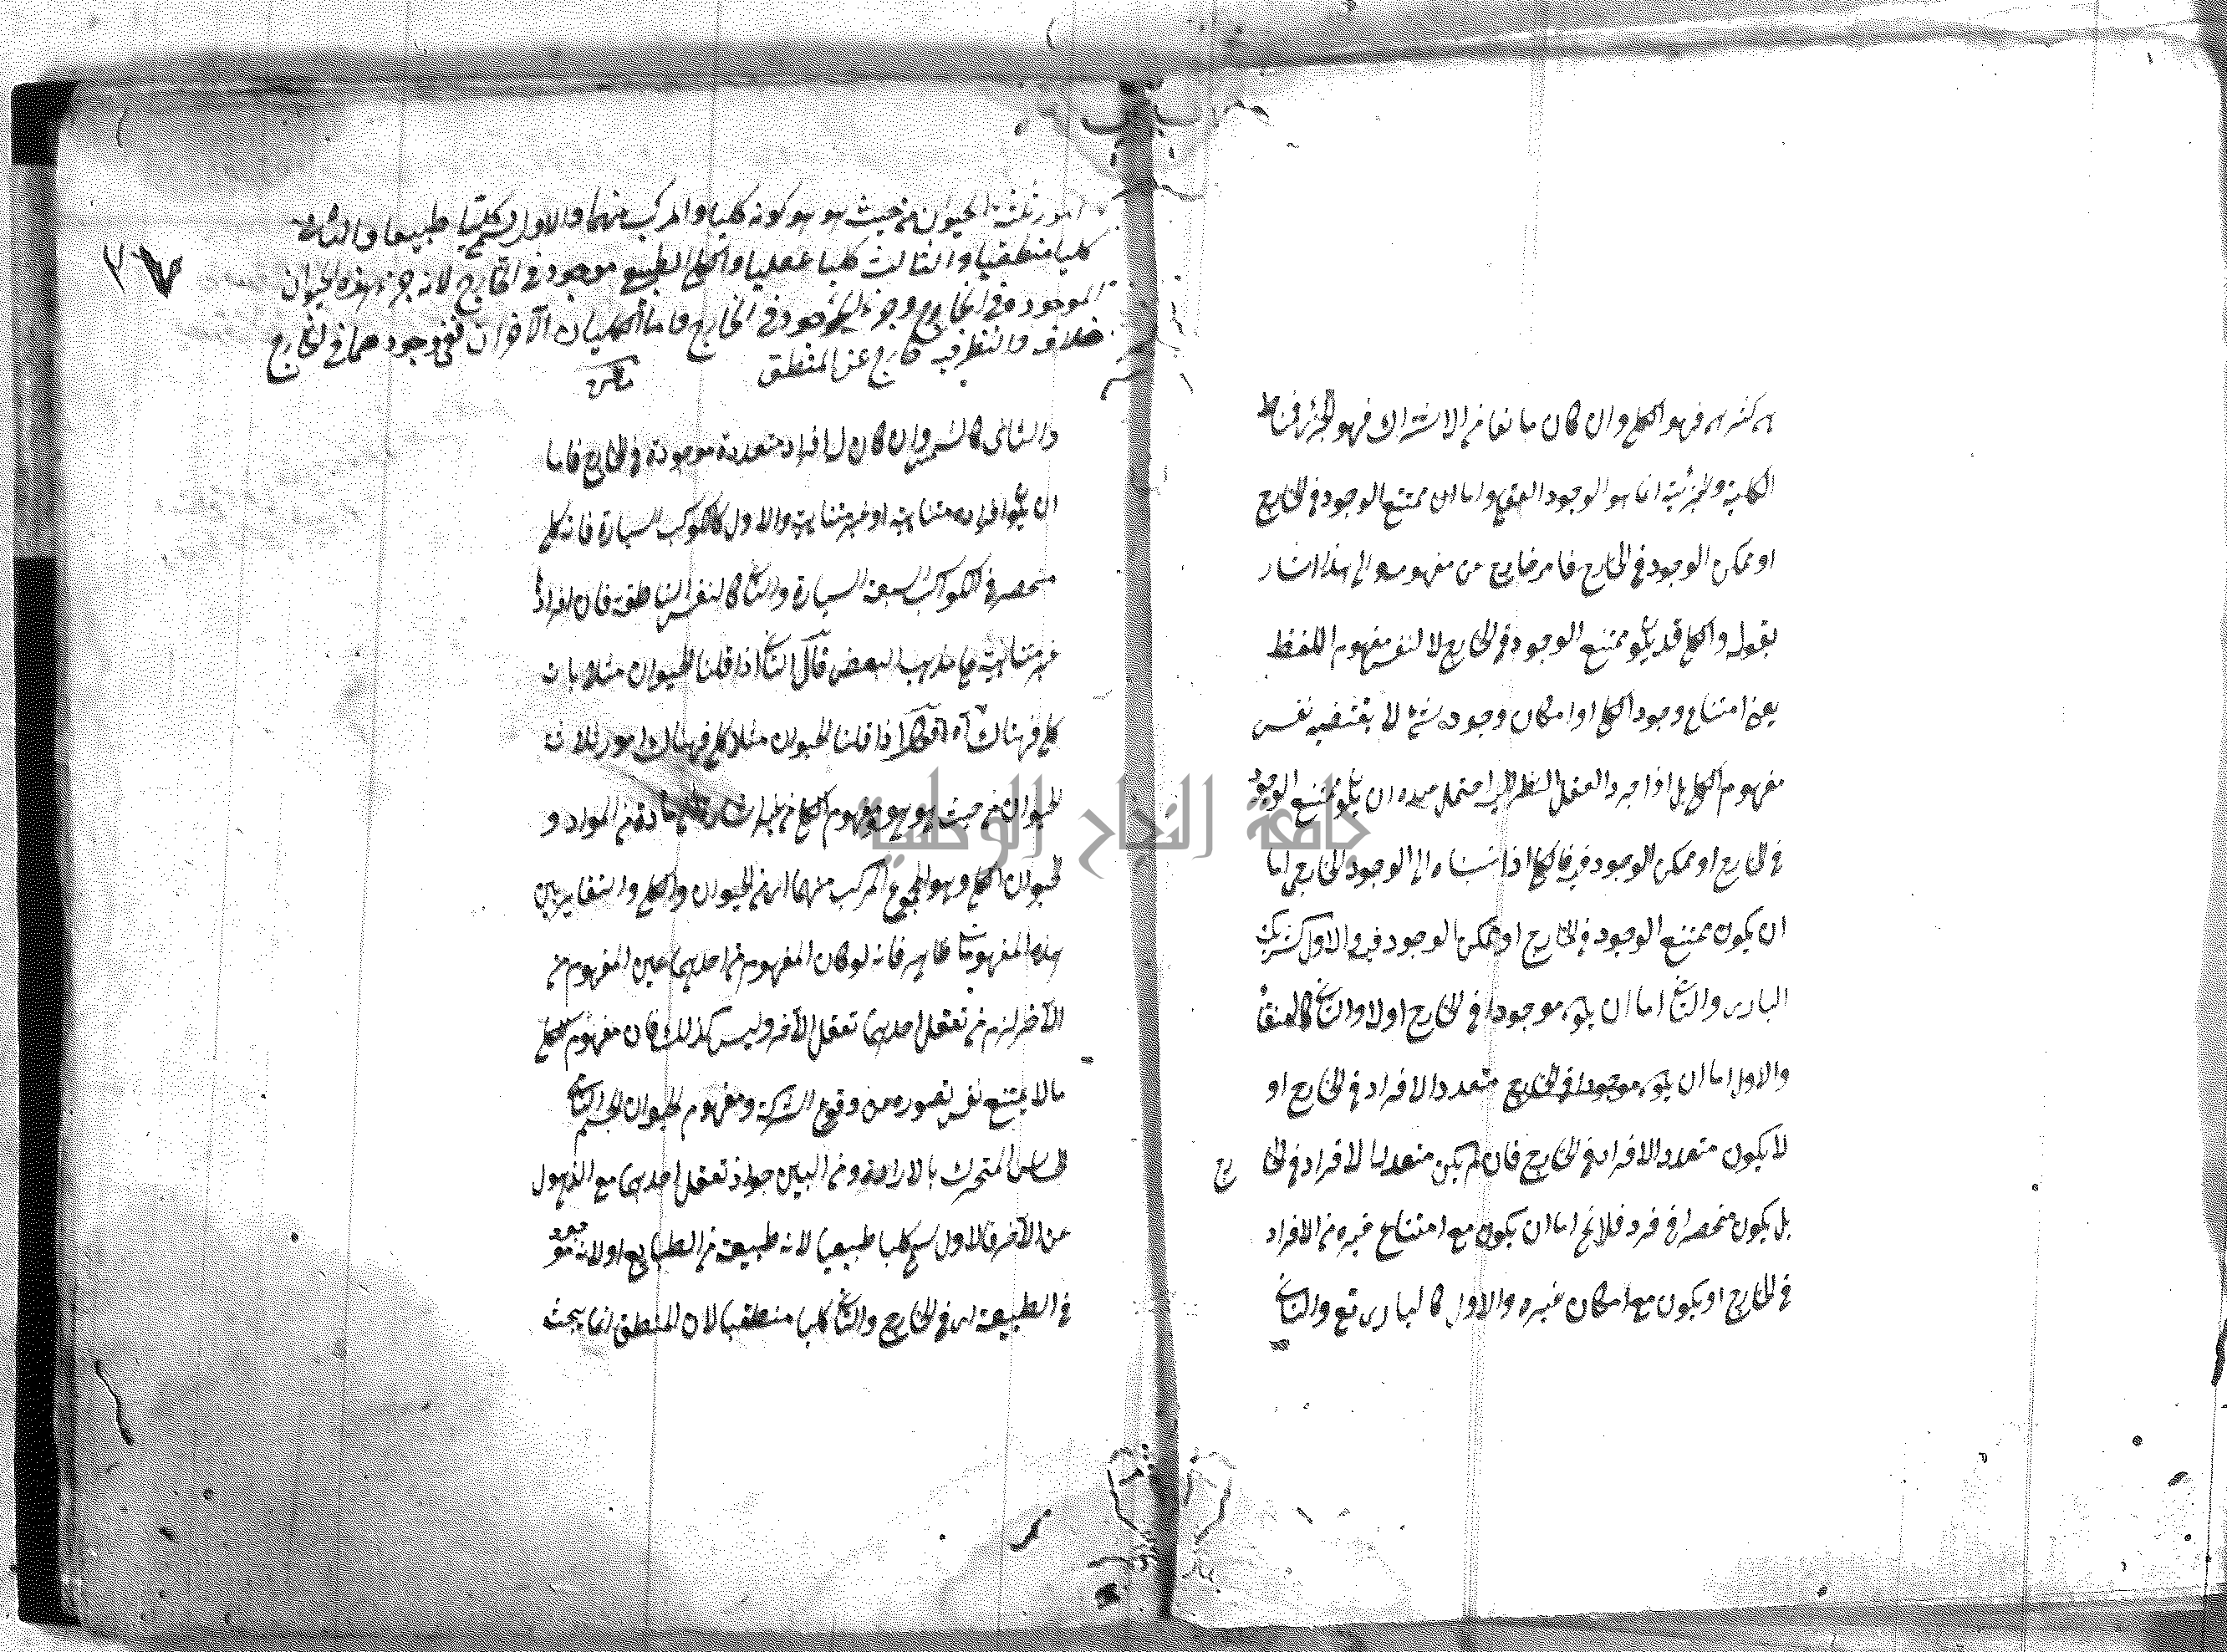 كثيرين فهو الكلي وان كان مانعا من الاشتراك فهو الجزئي فمناط
الكلية والجزئية انما هو الوجود العقلي واما ان ممتنع الوجود في الخارج
او ممكن الوجود في الخارج فامر خارج عن مفهومه والى هذا اشار
بقوله والكلي قد يكون ممتنع الوجود في الخارج لا لنفس مفهوم اللفظ
يعني امتناع وجود الكلي او امكان وجوده شيء لا يقتضيه نفس
مفهوم الكلي بل اذا جرد العقل النظر اليه احتمل عنده ان يكون ممتنع الوجود
في الخارج او ممكن الوجود فيه فالكلي اذا نسبناه الى الوجود الخارجي اما
ان يكون ممتنع الوجود في الخارج او ممكن الوجود فيه والاول كشريك
الباري والثاني اما ان يكون موجودا في الخارج اولا والثاني كالعنقاء
والاول اما ان يكون موجودا في الخارج متعدد الافراد في الخارج او
لا يكون متعدد الافراد في الخارج فان لم يكن متعدد الافراد في الخارج
بل يكون منحصرا في فرد فلا يخ اما ان يكون مع امتناع غيره من الافراد
في الخارج او يكون مع امكان غيره والاول كالباري تع والثاني
امور ثلث الحيوان من حيث هو هو وكونه كليا والمركب منهما والاول يسمى كليا طبيعيا والثاني
كليا منطقيا والثالث كليا عقليا والكلي الطبيعي موجود في الخارج لانه جزء هذا الحيوان
الموجود في الخارج وجزء الموجود موجود في الخارج واما الكليان الآخران ففي وجودهما في الخارج
خلاف والنظر فيه خارج عن المنطق
والثاني كالشمس وان كان له افراد متعددة موجودة في الخارج فاما
ان يكون افراده متناهية او غير متناهية والاول كالكواكب السيارة فانه كلي
منحصر في الكواكب السبعة السيارة والثاني كالنفس الناطقة فان افرادها
غير متناهية على مذهب البعض قال الثاني اذا قلنا الحيوان مثلا بانه
كلي فهناك آه اقول اذا قلنا الحيوان مثلا كلي فهناك امور ثلاثة
الحيوان من حيث هو هو ومفهوم الكلي من غير اشارة الى مادة من المواد و
الحيوان الكلي وهو المجموع المركب منهما اي من الحيوان والكلي والتغاير بين
هذه المفهومات ظاهر فانه لو كان المفهوم من احدهما عين المفهوم من
الآخر لزم من تعقل احدهما تعقل الآخر وليس كذلك فان مفهوم الكلي
ما لا يمتنع نفس تصوره من وقوع الشركة ومفهوم الحيوان الجسم النامي
الحساس المتحرك بالارادة ومن البين جواز تعقل احدهما مع الذهول
عن الآخر فالاول يسمى كليا طبيعيا لانه طبيعة من الطبايع او لانه موجود
في الطبيعة اي في الخارج والثاني كليا منطقيا لان المنطقي انما يبحث
جامعة النجاح الوطنية